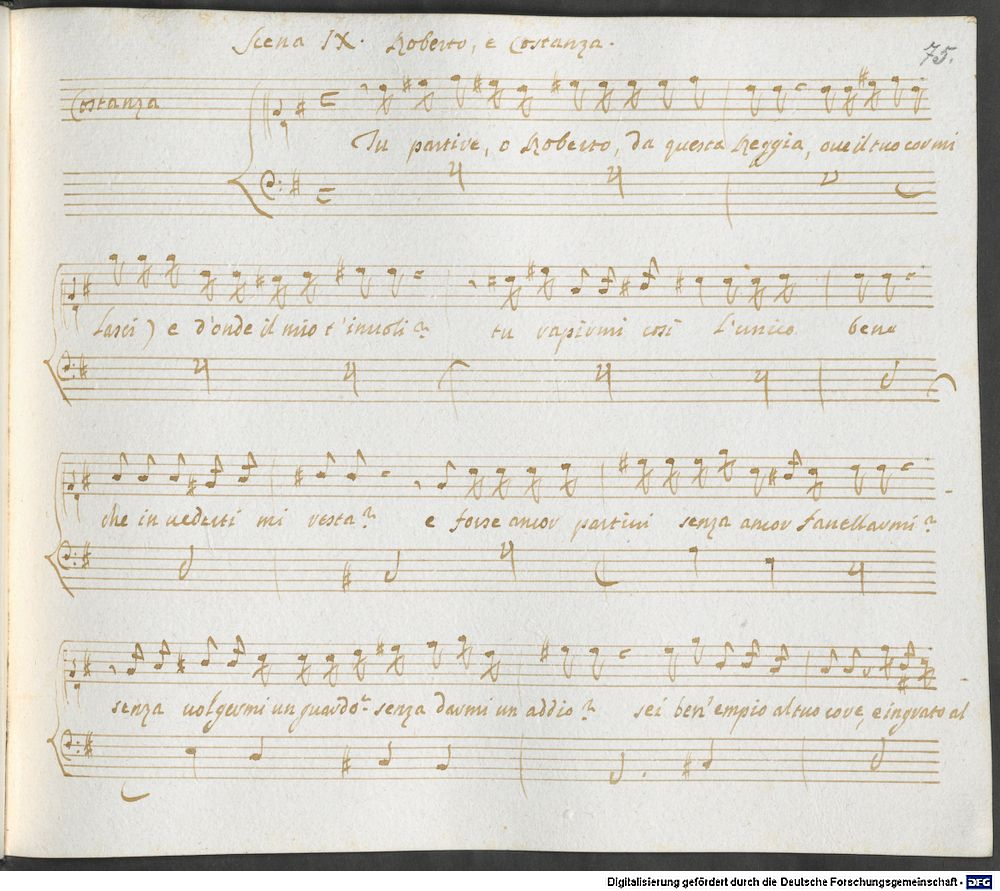 Scena IX. Roberto, e Costanza.
75.
Costanza
Tu partire, o Roberto, da questa Reggia, ove il tuo cor mi
lasci) e d'onde il mio t'involi?  tu rapirmi così l'unico bene
che in vederti mi resta? e forse ancor partivi senza ancor favellarmi?
senza volgermi un guardo? senza darmi un addio? sei ben'empio al tuo core, e ingrato al
Digitalisierung gefördert durch die Deutsche Forschungsgemeinschaft - DFG